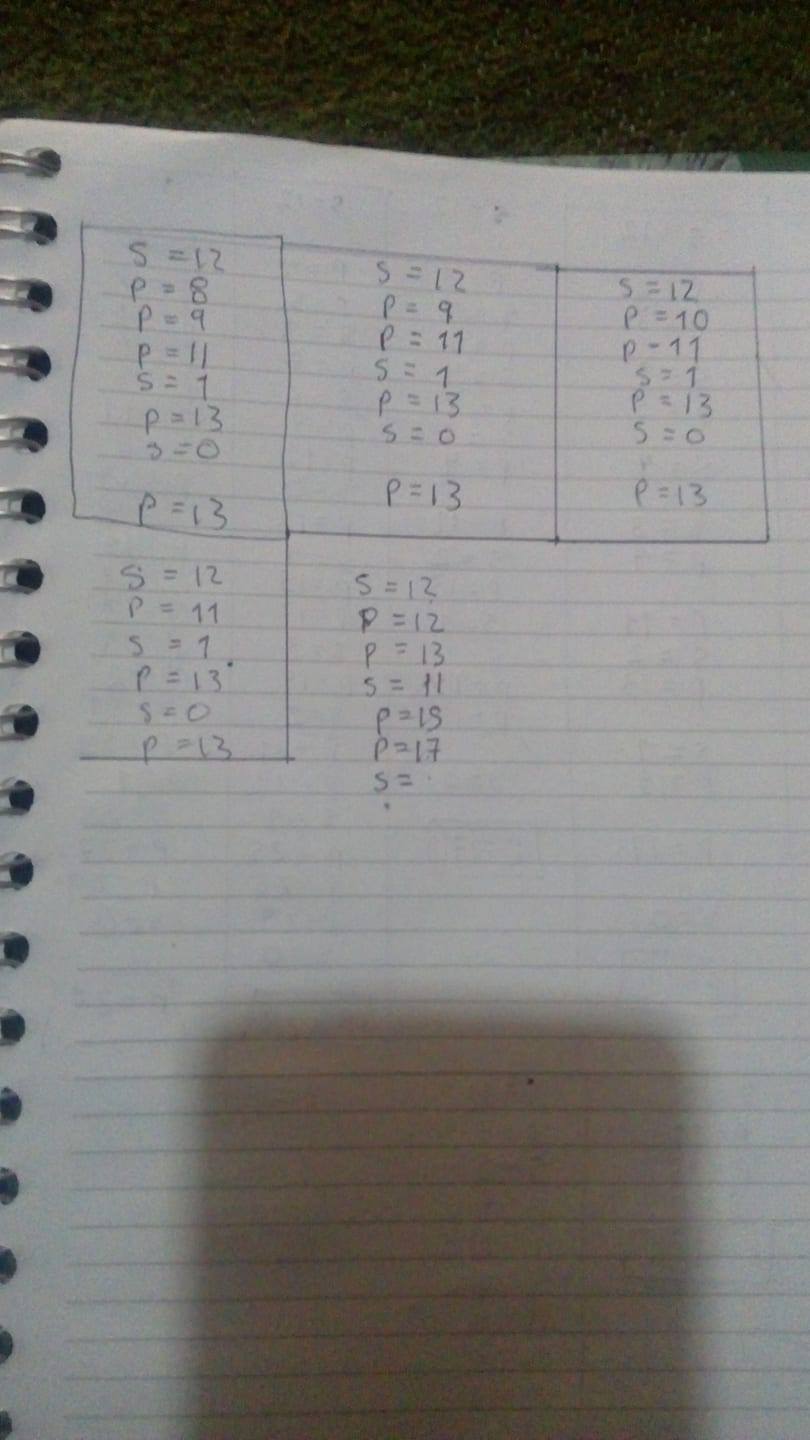 S = 12
P = 8
P = 9
P = 11
S = 1
P = 13
S = 0
P = 13
S = 12
P = 9
P = 11
S = 1
P = 13
S = 0
P = 13
S = 12
P = 10
P - 11
S = 1
P = 13
S = 0
P = 13
S = 12
P = 11
S = 1
P = 13
S = 0
P = 13
S = 12
P = 12
P = 13
S = 11
P = 15
P = 17
S =